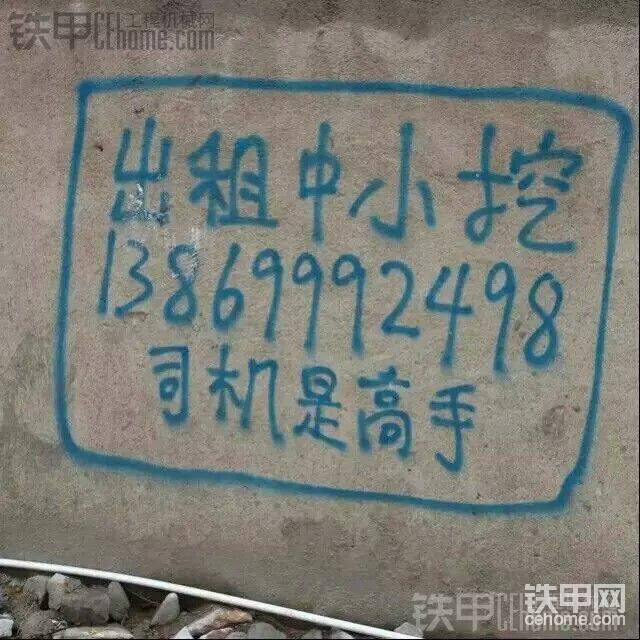 铁甲工程机械网
CEhome.com
出租中小挖
13869992498
司机是高手
铁甲CEhome.com
铁甲网
cehome.com